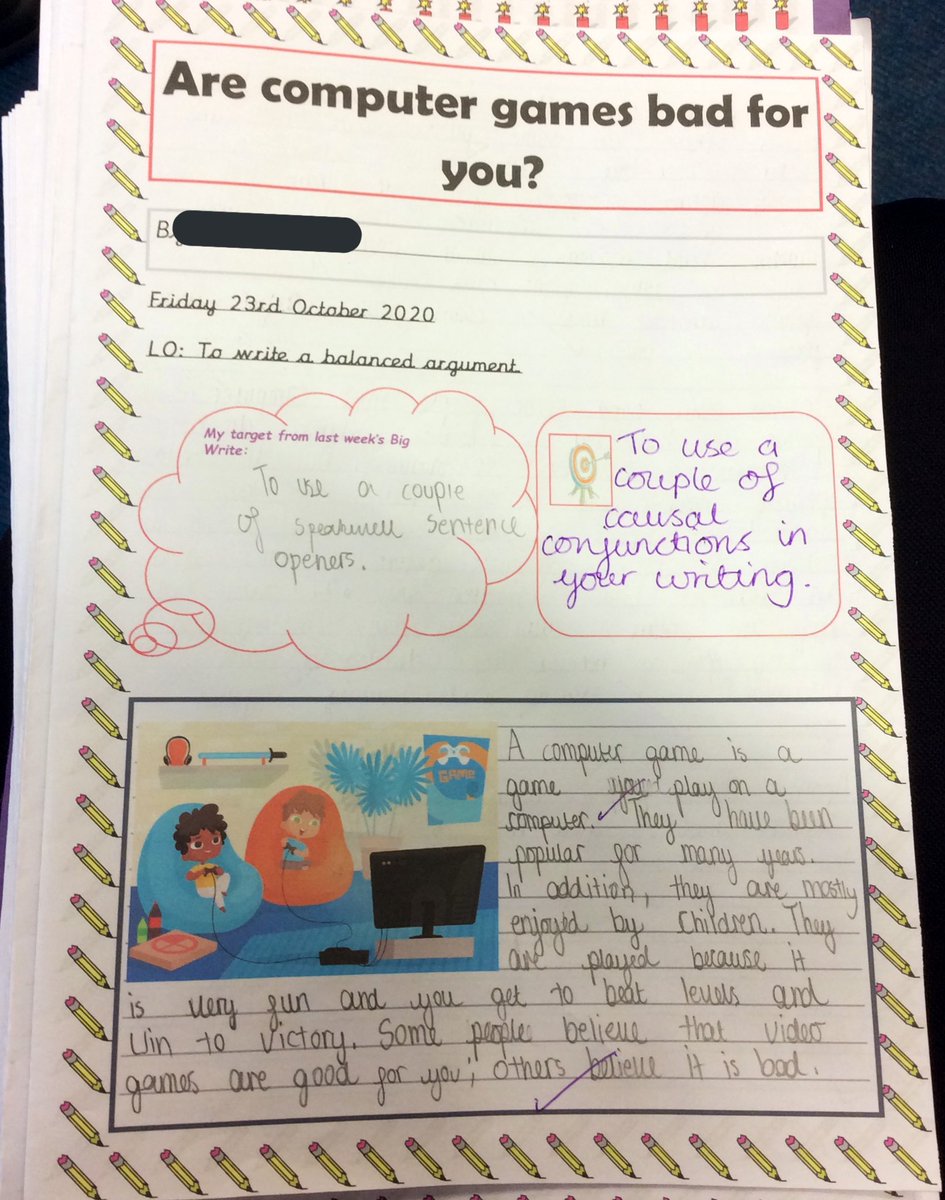 Are computer games bad for
you?
B
Friday 23rd October 2020
LO: To write a balanced argument
My target from last week's Big
Write:
To use a couple
of sentence
openers.
To use a
couple of
causal
conjunctions in
your writing.
GAME
A computer game is a
game you play on a
computer. They have been
popular for many years.
In addition, they are mostly
enjoyed by children. They
are played because it
is very fun and you get to beat levels and
win to victory. Some people believe that video
games are good for you; others believe it is bad.